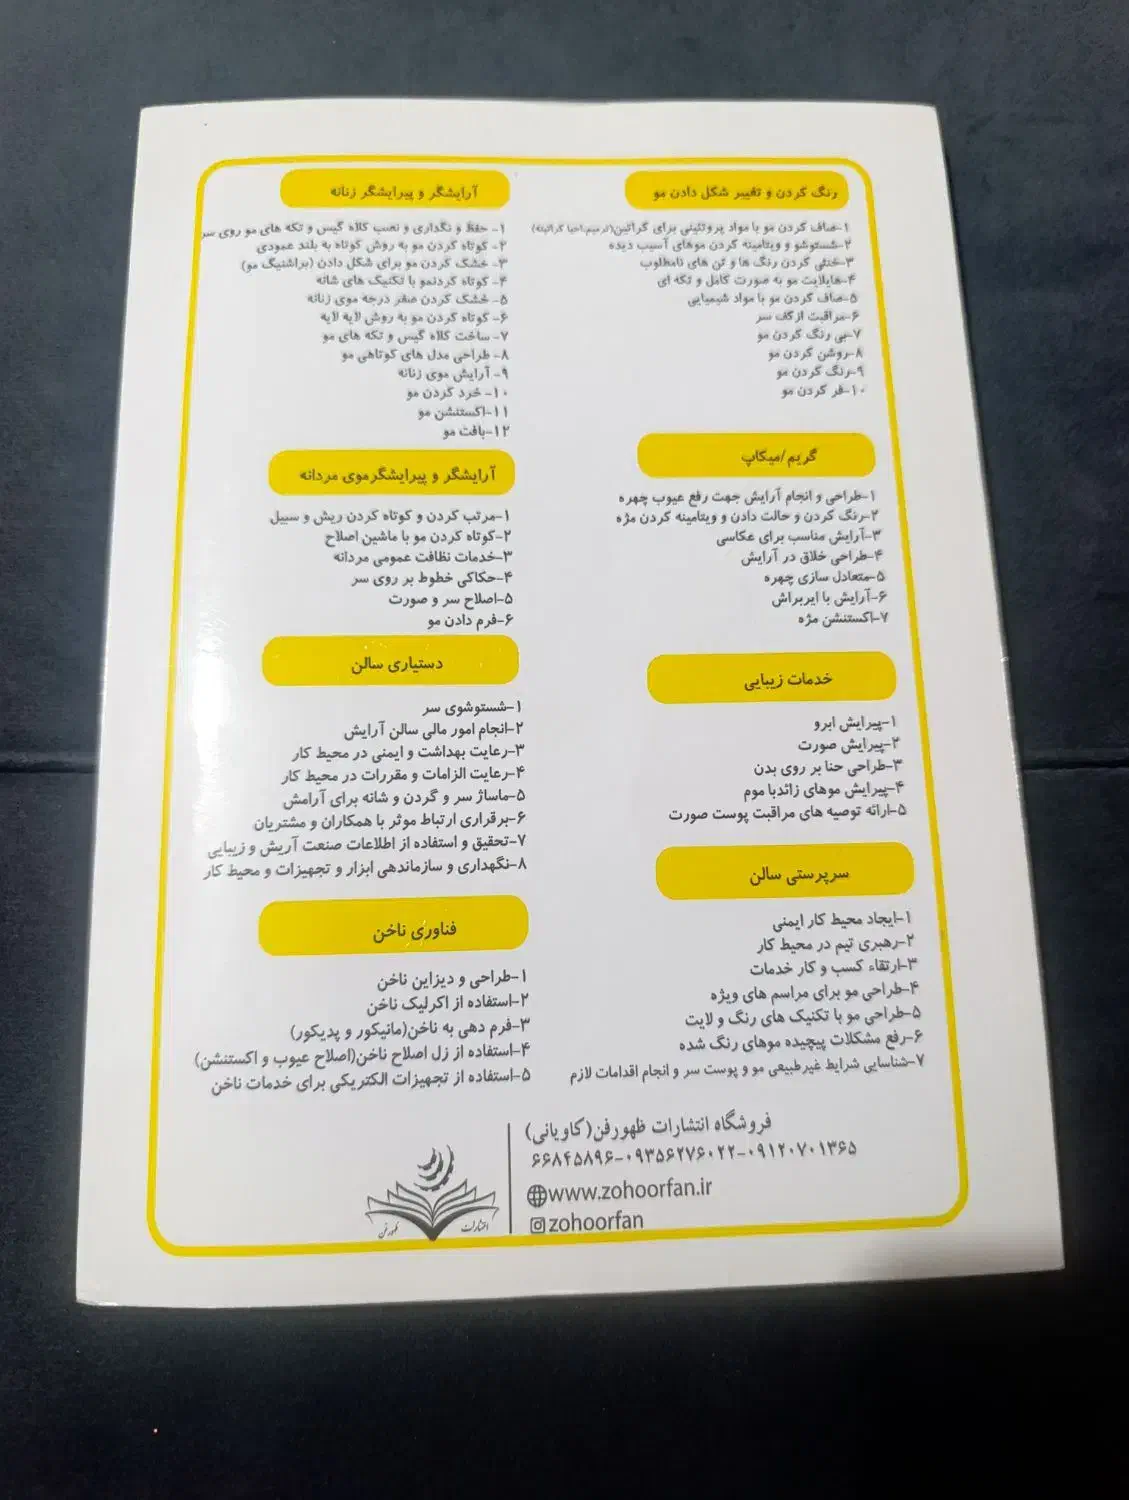 رنگ کردن و تغییر شکل دادن مو
۱-صاف کردن مو با مواد پروتئینی برای گراتین(ترمیم،احیا کراتینه)
۲-شستوشو و ویتامینه کردن موهای آسیب دیده
۳-خنثی کردن رنگ ها و تن های نامطلوب
۴-هایلایت مو به صورت کامل و تکه ای
۵-صاف کردن مو با مواد شیمیایی
۶-مراقبت ازکف سر
۷-بی رنگ کردن مو
۸-روشن کردن مو
۹-رنگ کردن مو
۱۰-فر کردن مو
گریم/میکاپ
۱-طراحی و انجام آرایش جهت رفع عیوب چهره
۲-رنگ کردن و حالت دادن و ویتامینه کردن مژه
۳-آرایش مناسب برای عکاسی
۴-طراحی خلاق در آرایش
۵-متعادل سازی چهره
۶-آرایش با ایربراش
۷-اکستنشن مژه
خدمات زیبایی
۱-پیرایش ابرو
۲-پیرایش صورت
۳-طراحی حنا بر روی بدن
۴-پیرایش موهای زائدبا موم
۵-ارائه توصیه های مراقبت پوست صورت
سرپرستی سالن
۱-ایجاد محیط کار ایمنی
۲-رهبری تیم در محیط کار
۳-ارتقاء کسب و کار خدمات
۴-طراحی مو برای مراسم های ویژه
۵-طراحی مو با تکنیک های رنگ و لایت
۶-رفع مشکلات پیچیده موهای رنگ شده
۷-شناسایی شرایط غیرطبیعی مو و پوست سر و انجام اقدامات لازم
آرایشگر و پیرایشگر زنانه
۱- حفظ و نگداری و نصب کلاه گیس و تکه های مو روی سر
۲- کوتاه کردن مو به روش کوتاه به بلند عمودی
۳- خشک کردن مو برای شکل دادن (براشنیگ مو)
۴- کوتاه کردنمو با تکنیک های شانه
۵- خشک کردن صفر درجه موی زنانه
۶- کوتاه کردن مو به روش لایه لایه
۷- ساخت کلاه گیس و تکه های مو
۸- طراحی مدل های کوتاهی مو
۹- آرایش موی زنانه
۱۰- خرد کردن مو
۱۱-اکستنشن مو
۱۲-بافت مو
آرایشگر و پیرایشگرموی مردانه
۱-مرتب کردن و کوتاه کردن ریش و سبیل
۲-کوتاه کردن مو با ماشین اصلاح
۳-خدمات نظافت عمومی مردانه
۴-حکاکی خطوط بر روی سر
۵-اصلاح سر و صورت
۶-فرم دادن مو
دستیاری سالن
۱-شستوشوی سر
۲-انجام امور مالی سالن آرایش
۳-رعایت بهداشت و ایمنی در محیط کار
۴-رعایت الزامات و مقررات در محیط کار
۵-ماساژ سر و گردن و شانه برای آرامش
۶-برقراری ارتباط موثر با همکاران و مشتریان
۷-تحقیق و استفاده از اطلاعات صنعت آریش و زیبایی
۸-نگهداری و سازماندهی ابزار و تجهیزات و محیط کار
فناوری ناخن
۱-طراحی و دیزاین ناخن
۲-استفاده از اکرلیک ناخن
۳-فرم دهی به ناخن(مانیکور و پدیکور)
۴-استفاده از ژل اصلاح ناخن(اصلاح عیوب و اکستنشن)
۵-استفاده از تجهیزات الکتریکی برای خدمات ناخن
فروشگاه انتشارات ظهورفن(کاویانی)
۶۶۸۴۵۸۹۶-۰۹۳۵۶۲۷۶۰۲۲-۰۹۱۲۰۷۰۱۳۶۵
www.zohoorfan.ir
zohoorfan
انتشارات ظهورفن